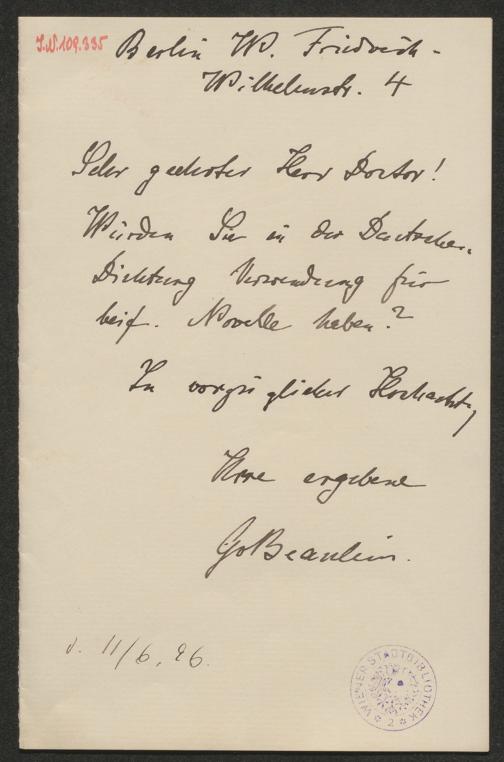 J.N. 109.335
Berlin W. Friedrich-
Wilhelmstr. 4
Sehr geehrter Herr Doctor!
Würden Sie in der Deutschen
Dichtung Verwendung für
beif. Novelle haben?
In vorzüglicher Hochachtg,
Ihre ergebene
GvBeaulieu.
d. 11/6. 96.
WIENER STADTBIBLIOTHEK
2